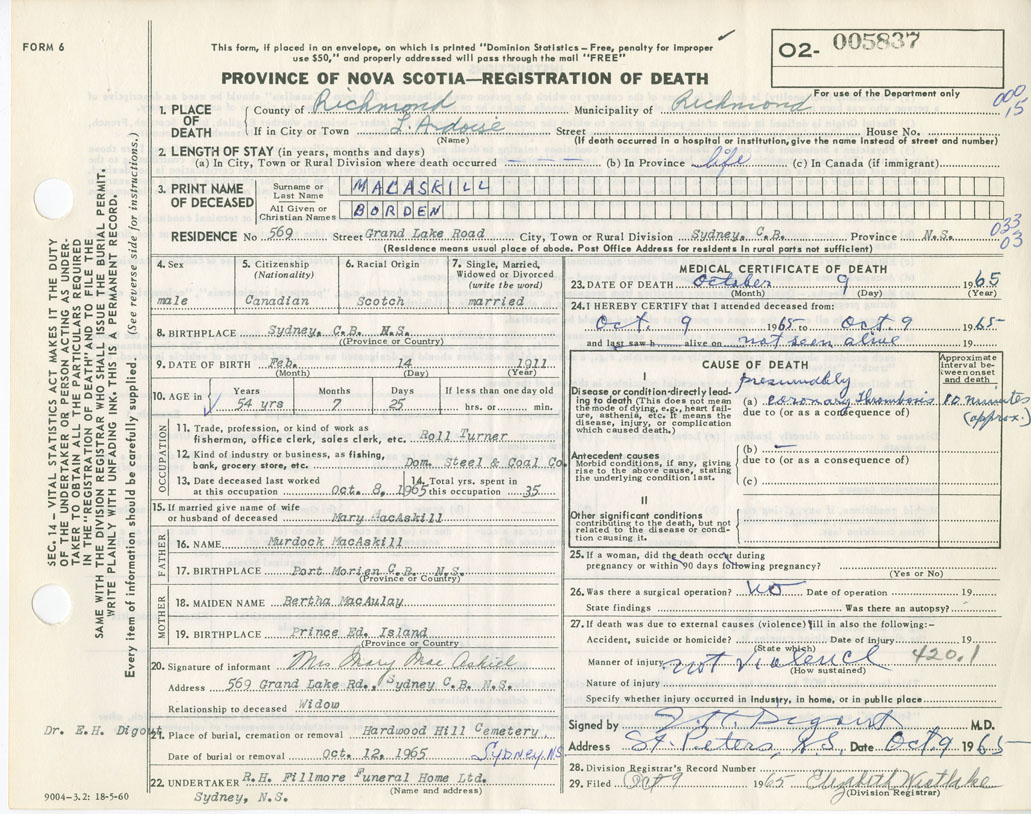 FORM 6
This form, if placed in an envelope, on which is printed "Dominion Statistics—Free, penalty for improper
use $50," and properly addressed will pass through the mail "FREE"
O2- 005837
For use of the Department only
PROVINCE OF NOVA SCOTIA—REGISTRATION OF DEATH
000
15
1. PLACE OF DEATH
County of Richmond Municipality of Richmond
If in City or Town L. Ardoise Street House No.
(Name) (If death occurred in a hospital or institution, give the name instead of street and number)
2. LENGTH OF STAY (in years, months and days)
(a) In City, Town or Rural Division where death occurred - - - (b) In Province life (c) In Canada (if immigrant)
3. PRINT NAME OF DECEASED
Surname or Last Name MACASKILL
All Given or Christian Names BORDEN
033
03
RESIDENCE No 569 Street Grand Lake Road City, Town or Rural Division Sydney, C.B. Province N.S.
(Residence means usual place of abode. Post Office Address for residents in rural parts not sufficient)
4. Sex
male
5. Citizenship
(Nationality)
Canadian
6. Racial Origin
Scotch
7. Single, Married,
Widowed or Divorced
(write the word)
married
8. BIRTHPLACE Sydney, C.B. N.S.
(Province or Country)
9. DATE OF BIRTH Feb. 14 1911
(Month) (Day) (Year)
10. AGE in
Years Months Days If less than one day old
54 yrs 7 25 hrs. or min.
OCCUPATION
11. Trade, profession, or kind of work as
fisherman, office clerk, sales clerk, etc. Roll Turner
12. Kind of industry or business, as fishing,
bank, grocery store, etc. Dom. Steel & Coal Co.
13. Date deceased last worked
at this occupation Oct. 8, 1965
14. Total yrs. spent in
this occupation 35
15. If married give name of wife
or husband of deceased Mary MacAskill
FATHER
16. NAME Murdock MacAskill
17. BIRTHPLACE Port Morien C.B. N.S.
(Province or Country)
MOTHER
18. MAIDEN NAME Bertha MacAulay
19. BIRTHPLACE Prince Ed. Island
(Province or Country)
20. Signature of informant Mrs Mary MacAskill
Address 569 Grand Lake Rd., Sydney C.B. N.S.
Relationship to deceased Widow
Dr. E.H. Digout
21. Place of burial, cremation or removal Hardwood Hill Cemetery
Date of burial or removal Oct. 12, 1965 SYDNEY. N.S.
22. UNDERTAKER R.H. Fillmore Funeral Home Ltd.
(Name and address)
Sydney, N.S.
9004—3.2: 18-5-60
MEDICAL CERTIFICATE OF DEATH
23. DATE OF DEATH October 9 1965
(Month) (Day) (Year)
24. I HEREBY CERTIFY that I attended deceased from:
Oct. 9 1965 to Oct. 9 1965
and last saw h alive on not seen alive 19
CAUSE OF DEATH
Approximate
interval be-
tween onset
and death
I
Disease or condition directly lead-
ing to death (This does not mean
the mode of dying, e.g., heart fail-
ure, asthenia, etc. It means the
disease, injury, or complication
which caused death.)
presumably
(a) coronary thrombosis 10 minutes
(approx.)
due to (or as a consequence of)
Antecedent causes
Morbid conditions, if any, giving
rise to the above cause, stating
the underlying condition last.
(b) -
due to (or as a consequence of)
(c)
II
Other significant conditions
contributing to the death, but not
related to the disease or condi-
tion causing it.
25. If a woman, did the death occur during
pregnancy or within 90 days following pregnancy?
(Yes or No)
26. Was there a surgical operation? No Date of operation 19
State findings Was there an autopsy?
27. If death was due to external causes (violence) fill in also the following:-
Accident, suicide or homicide? Date of injury 19
(State which)
Manner of injury not violence 420.1
(How sustained)
Nature of injury
Specify whether injury occurred in industry, in home, or in public place
Signed by E. H. Digout M.D.
Address St. Peters, N.S. Date Oct 9 1965
28. Division Registrar's Record Number
29. Filed Oct 9 1965 Elizabeth Westlake
(Division Registrar)
SEC. 14—VITAL STATISTICS ACT MAKES IT THE DUTY
OF THE UNDERTAKER OR PERSON ACTING AS UNDER-
TAKER TO OBTAIN ALL THE PARTICULARS REQUIRED
IN THE "REGISTRATION OF DEATH" AND TO FILE THE
SAME WITH THE DIVISION REGISTRAR WHO SHALL ISSUE THE BURIAL PERMIT.
WRITE PLAINLY WITH UNFADING INK. THIS IS A PERMANENT RECORD.
Every item of information should be carefully supplied. (See reverse side for instructions.)